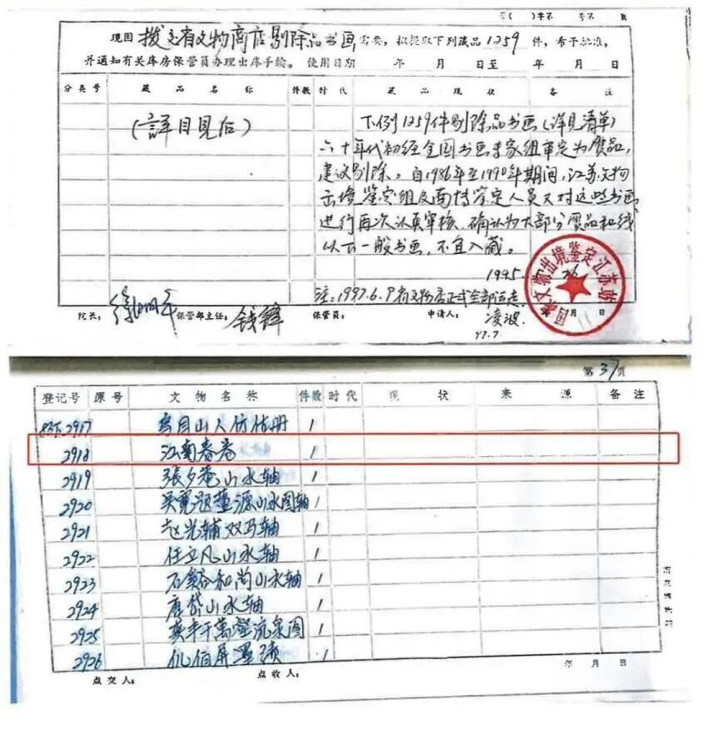 字第 号第 页
现因 拨交省文物商店剔除品书画 需要，拟提取下列藏品 1259 件，希予批准，
并通知有关库房保管员办理出库手续。 使用日期 年 月 日至 年 月 日
分类号 藏品名称 件数 时代 藏品现状 备注
(詳目見后)
下列1259件剔除品书画(详見清单)
六十年代初经全国书画专家组审定为赝品，
建议剔除。自1986年至1990年期间，江苏文物
出境鉴定组及南博鉴定人员又对这些书画
进行再次认真审核，确认为大部分赝品和线
以下一般书画，不宜入藏。
1995.
国家文物出境鉴定江苏站
月 日
注：1997.6.
院长： 徐湖平 保管部主任： 钱锋 保管员： 申请人： 凌波
97.7
第 37 页
登记号 原号 文物名称 件数 时代 现状 来源 备注
2917 1
2918 江南春卷 1
2919 張夕庵山水轴 1
2920 吴寬题董源山水图轴 1
2921 赵光辅双马轴 1
2922 任立凡山水轴 1
2923 石谿和尚山水轴 1
2924 唐岱山水轴 1
2925 萬壑流泉图 1
2926 1
年 月 日
点交人： 点收人：